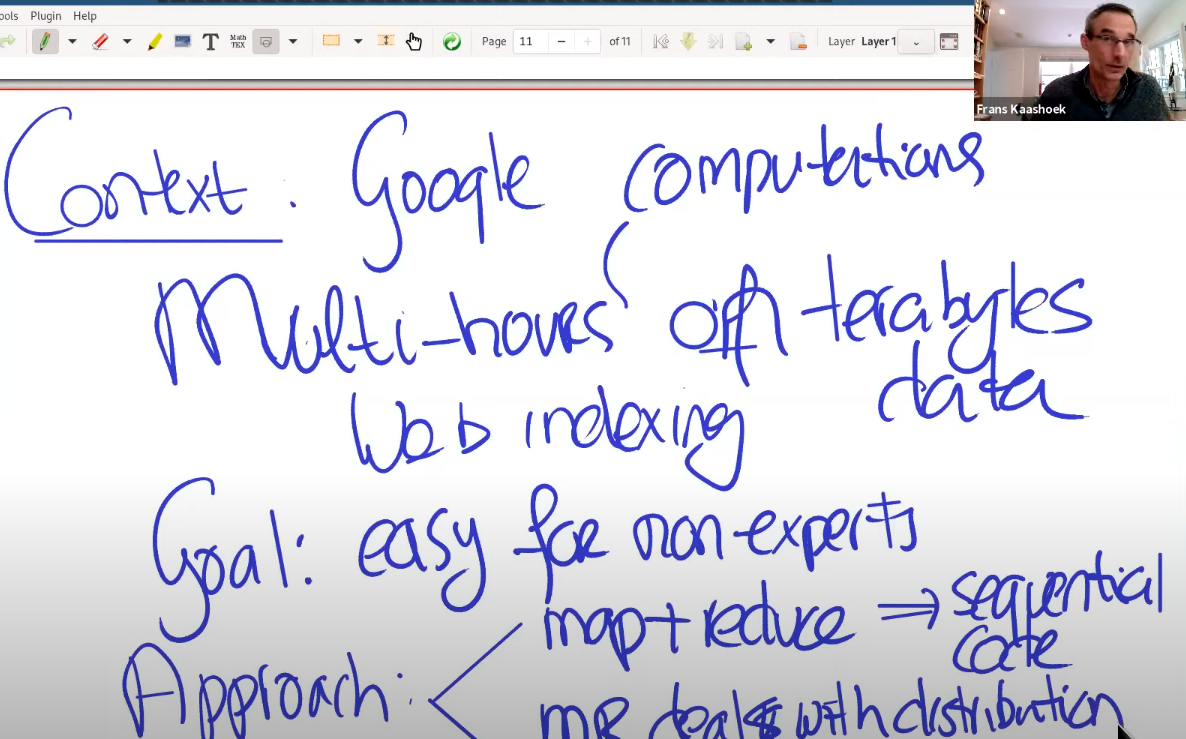 ools Plugin Help
Math TEX Page 11 of 11 Layer Layer 1
Frans Kaashoek
Context: Google computations
Multi-hours on terabytes
data
Web indexing
Goal: easy for non-experts
map+reduce ⇒ sequential
code
Approach:
MR deals with distribution